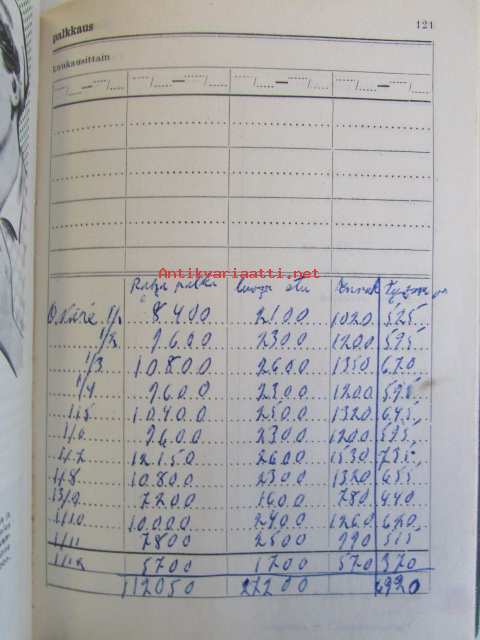 palkkaus 121
kuukausittain
Antikvariaatti.net
Raha palka luon. etu Ennak
1/1 8400 2100 1020 525
1/2 9600 2300 1200 595
1/3 10.800 2600 1350 670
1/4 9600 2300 1200 595
1/5 10400 2500 1320 645
1/6 9600 2300 1200 595
1/7 12.150 2600 1530 735
1/8 10.800 2300 1320 655
1/9 7200 1600 780 440
1/10 10.000 2400 1260 620
1/11 7800 2500 990 515
1/12 5700 1700 570 370
112050 27200 6920